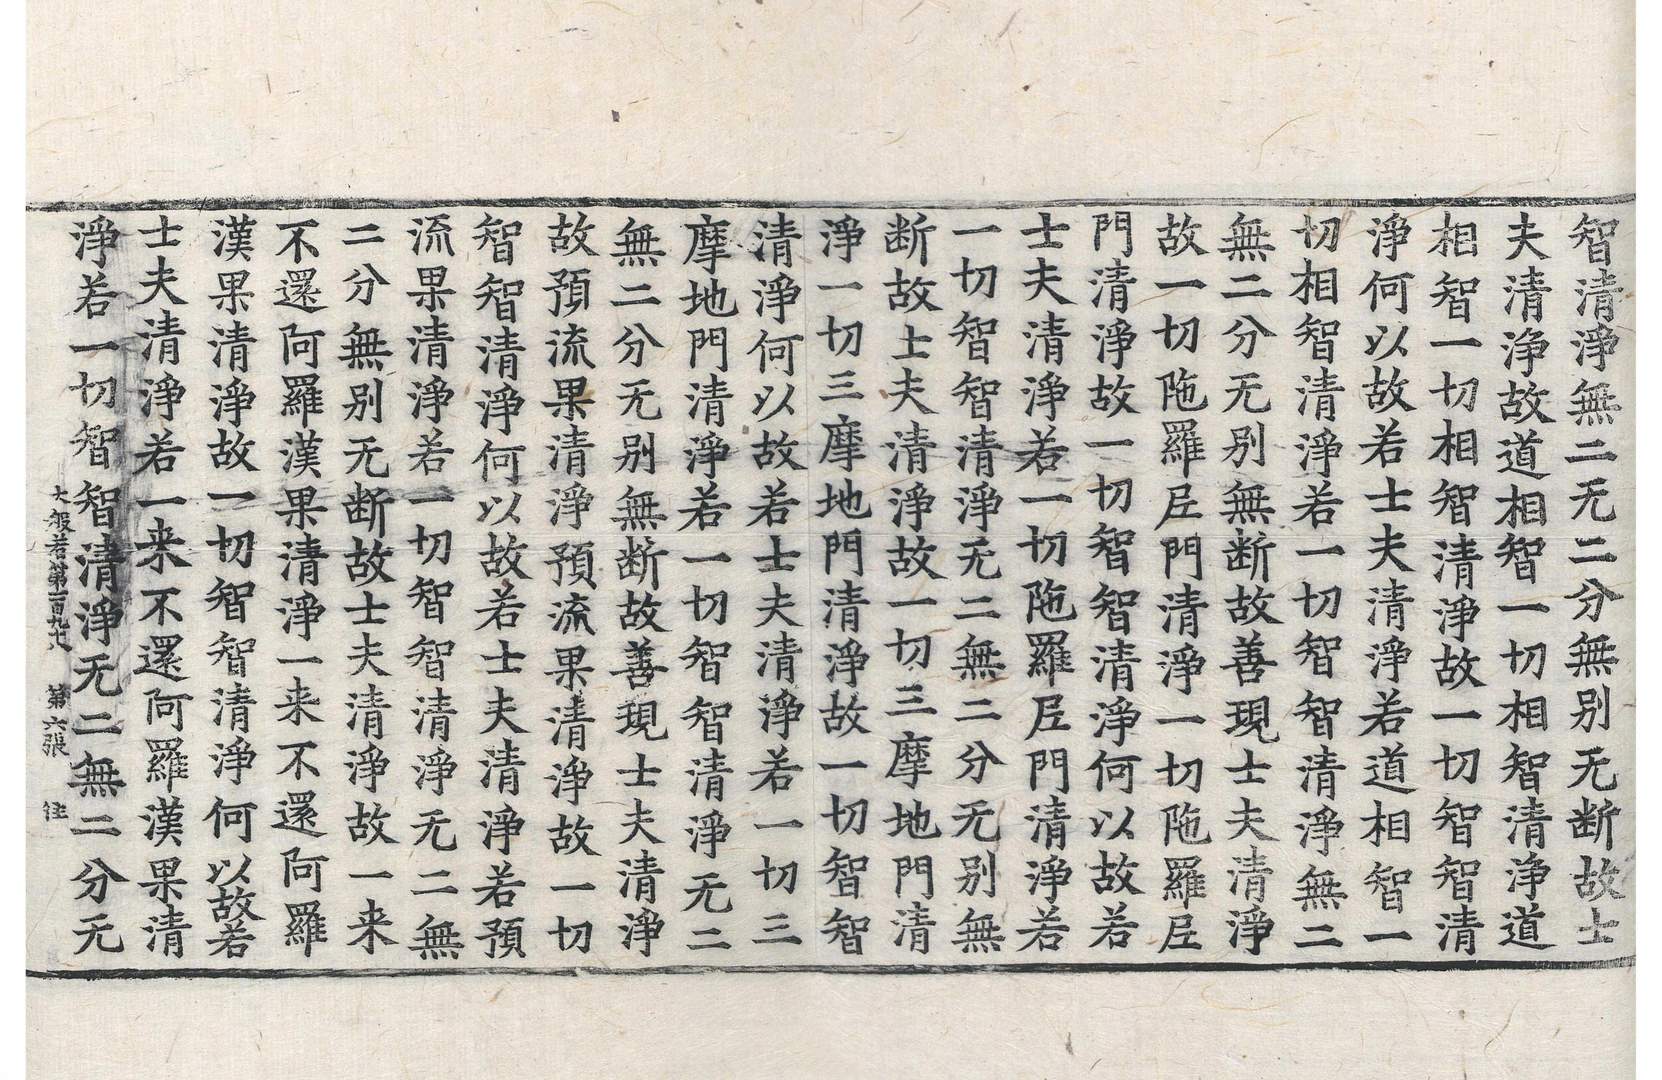 智清淨無二无二分無別无断故士
夫清淨故道相智一切相智清淨道
相智一切相智清淨故一切智智清
淨何以故若士夫清淨若道相智一
切相智清淨若一切智智清淨無二
無二分无別無断故善現士夫清淨
故一切陁羅尼門清淨一切陁羅尼
門清淨故一切智智清淨何以故若
士夫清淨若一切陁羅尼門清淨若
一切智智清淨无二無二分无別無
断故士夫清淨故一切三摩地門清
淨一切三摩地門清淨故一切智智
清淨何以故若士夫清淨若一切三
摩地門清淨若一切智智清淨无二
無二分无別無断故善現士夫清淨
故預流果清淨預流果清淨故一切
智智清淨何以故若士夫清淨若預
流果清淨若一切智智清淨无二無
二分無別无断故士夫清淨故一来
不還阿羅漢果清淨一来不還阿羅
漢果清淨故一切智智清淨何以故若
士夫清淨若一来不還阿羅漢果清
淨若一切智智清淨无二無二分无
大般若第一百九十八 第六張 往